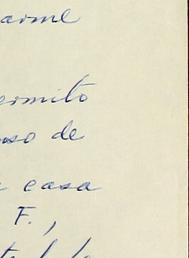 arme
ermito
oso de
a casa
F.,